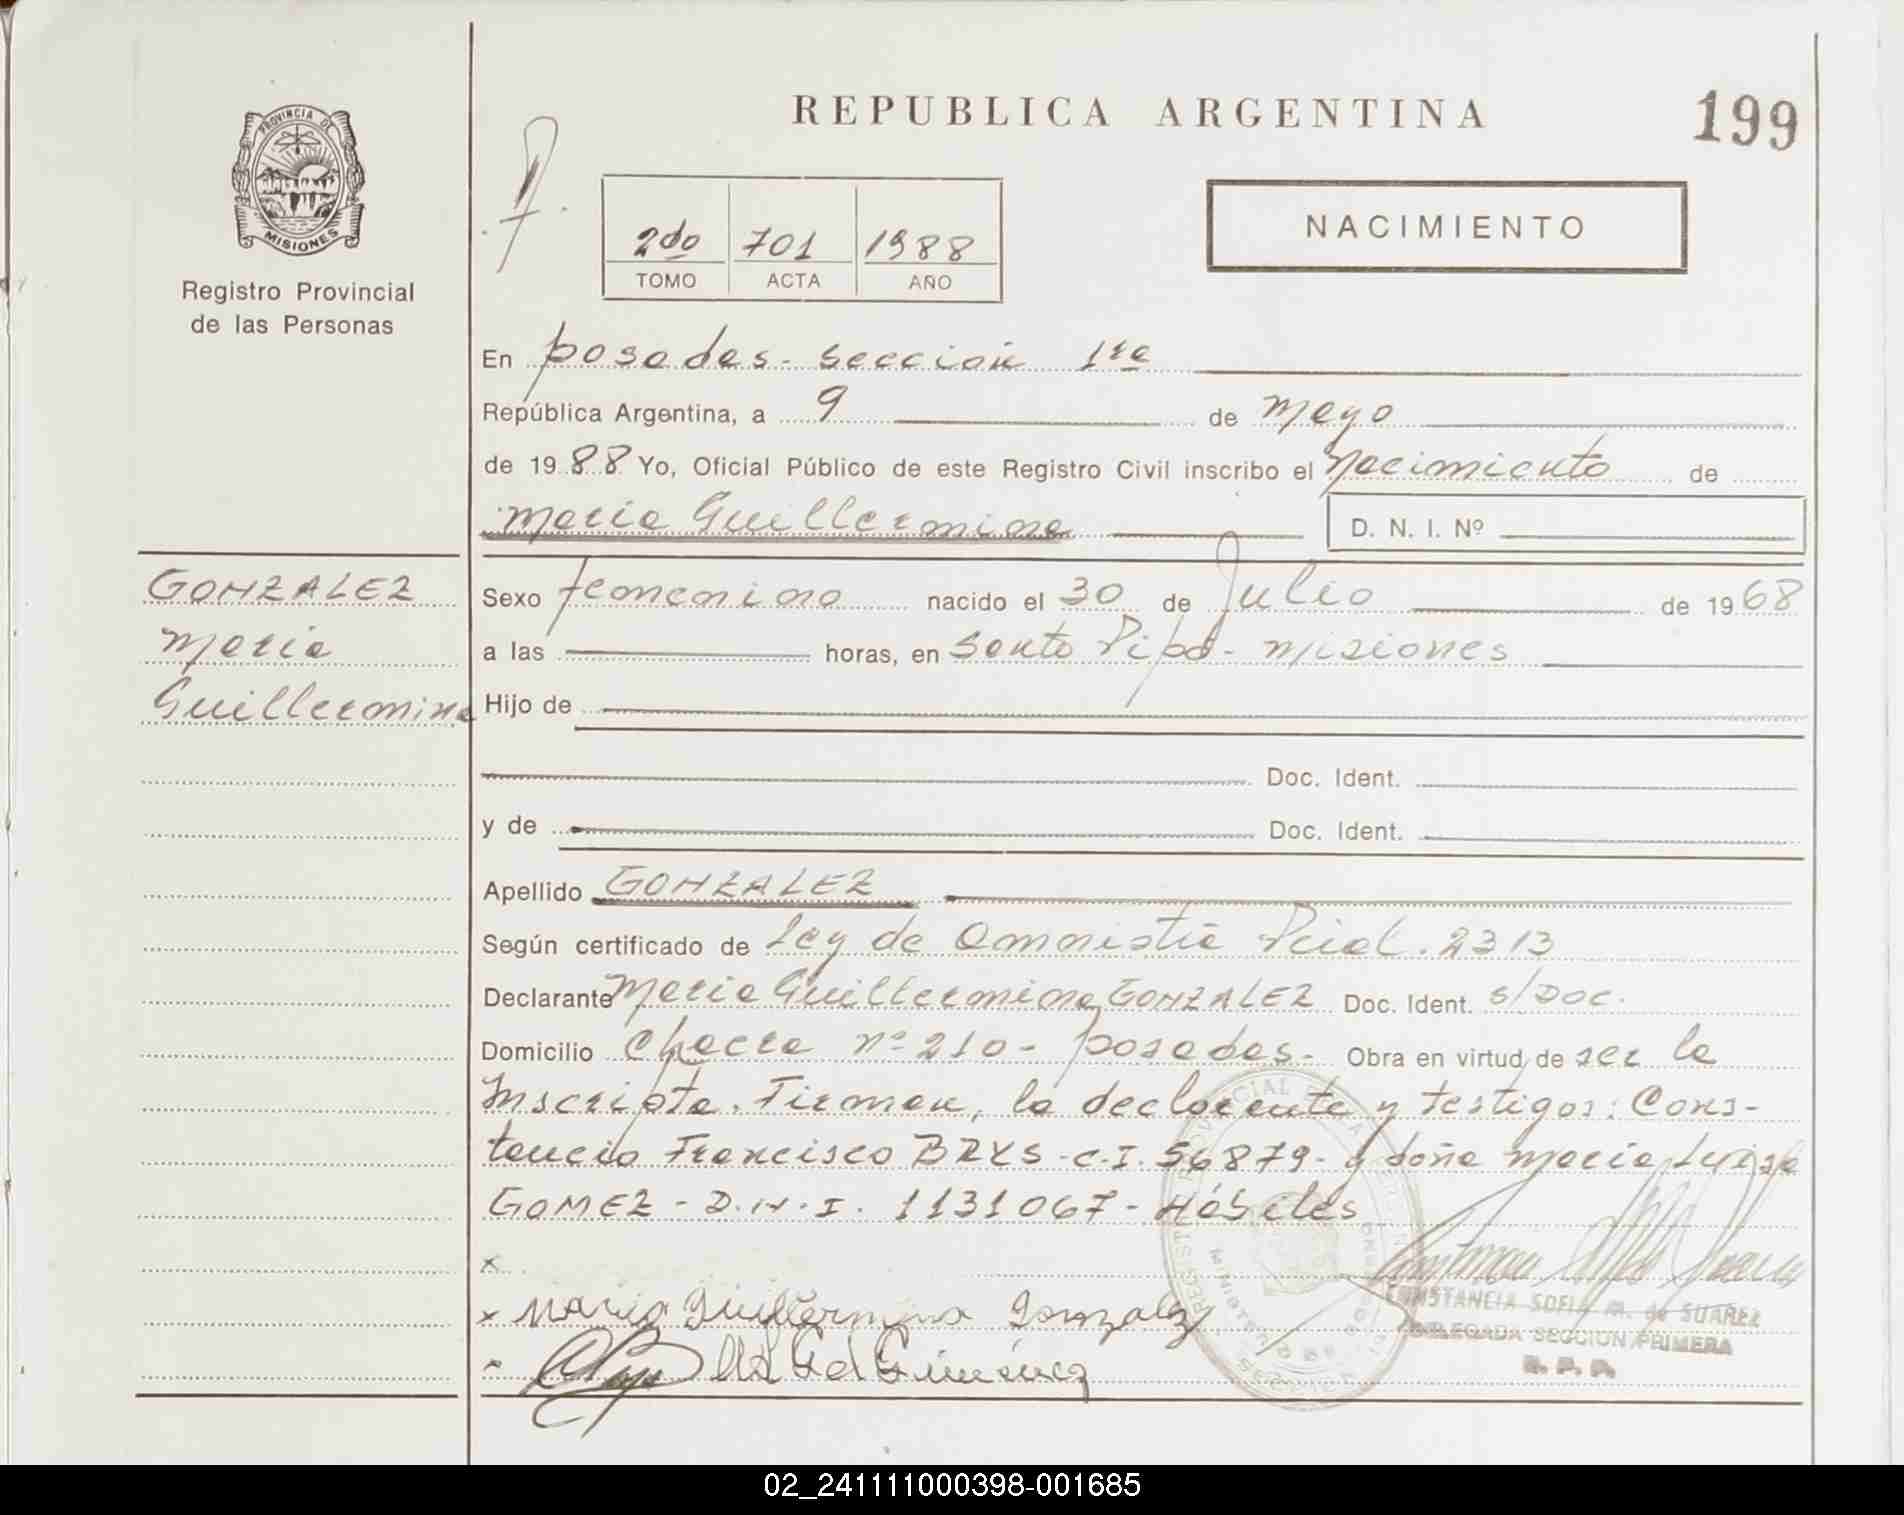 REPUBLICA ARGENTINA
199
PROVINCIA DE
MISIONES
Registro Provincial
de las Personas
2do 701 1988
TOMO ACTA AÑO
NACIMIENTO
En posadas - sección 1ra
República Argentina, a 9 de mayo
de 1988 Yo, Oficial Público de este Registro Civil inscribo el nacimiento de
María Guillermina
D. N. I. Nº
GONZALEZ
María
Guillermina
Sexo femenino nacido el 30 de Julio de 1968
a las horas, en Santo Pipó - misiones
Hijo de
Doc. Ident.
y de Doc. Ident.
Apellido GONZALEZ
Según certificado de Ley de amnistía Pcial. 2313
Declarante María Guillermina GONZALEZ Doc. Ident. s/Doc.
Domicilio Chacra nº 210 - posadas - Obra en virtud de ser la
Inscripta. Firman, la declarante y testigos: Cons-
tancio Francisco BRYS - C.I. 56879 - y doña María Luisa
GOMEZ - D.N.I. 1131067 - Hábiles
x
x Maria Guillermina Gonzalez
CONSTANCIA SOFIA M. de SUAREZ
DELEGADA SECCION PRIMERA
R. P. P.
02_241111000398-001685